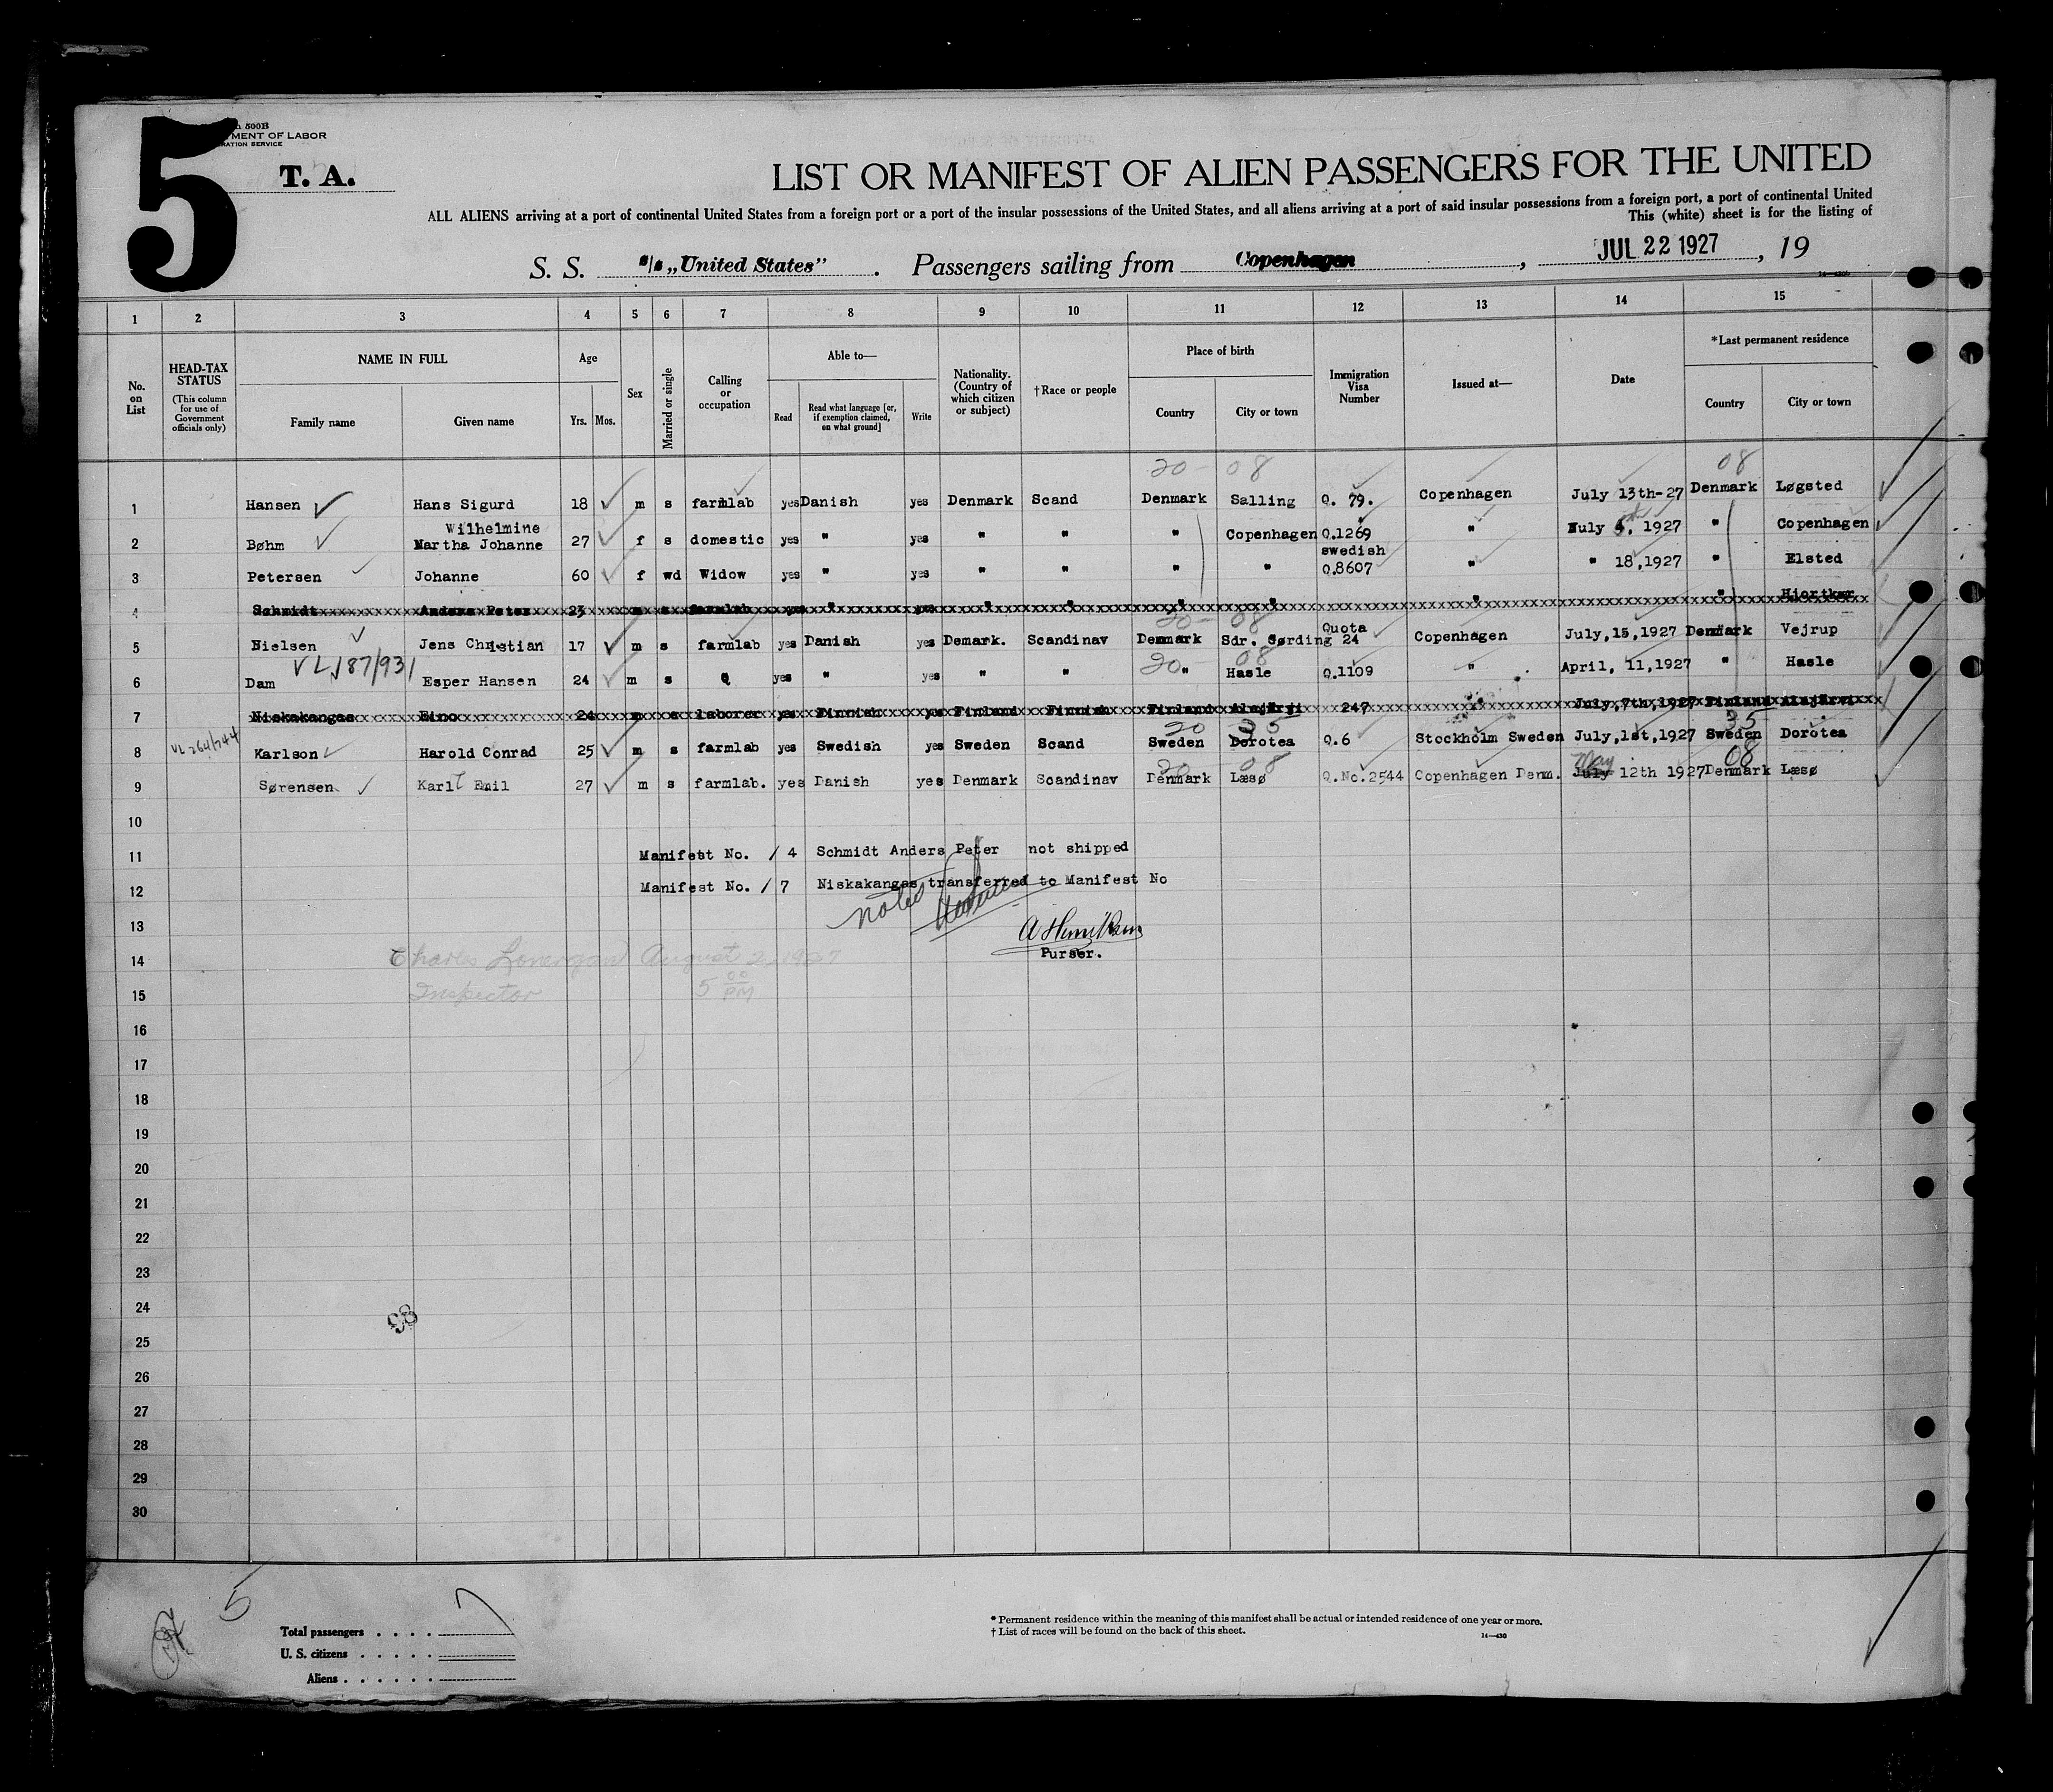 5
500B
MENT OF LABOR
RATION SERVICE
T. A.
LIST OR MANIFEST OF ALIEN PASSENGERS FOR THE UNITED
ALL ALIENS arriving at a port of continental United States from a foreign port or a port of the insular possessions of the United States, and all aliens arriving at a port of said insular possessions from a foreign port, a port of continental United
This (white) sheet is for the listing of
S. S. s/s „United States" . Passengers sailing from Copenhagen , JUL 22 1927 , 19
1 2 3 4 5 6 7 8 9 10 11 12 13 14 15
No. on List
HEAD-TAX STATUS (This column for use of Government officials only)
NAME IN FULL
Family name Given name
Age
Yrs. Mos.
Sex
Married or single
Calling or occupation
Able to—
Read Read what language [or, if exemption claimed, on what ground] Write
Nationality. (Country of which citizen or subject)
†Race or people
Place of birth
Country City or town
Immigration Visa Number
Issued at—
Date
*Last permanent residence
Country City or town
20 - 08 08
1 Hansen Hans Sigurd 18 m s farmlab yes Danish yes Denmark Scand Denmark Salling Q. 79. Copenhagen July 13th-27 Denmark Løgsted
2 Bøhm Wilhelmine Martha Johanne 27 f s domestic yes " yes " " " Copenhagen Q.1269 " July 6. 1927 " Copenhagen
3 Petersen Johanne 60 f wd Widow yes " yes " " " " swedish Q.8607 " " 18,1927 " Elsted
4 Schmidt Anders Peter 23 m s farmlab yes " yes " " " " " "
20 - 08
5 Nielsen Jens Christian 17 m s farmlab yes Danish yes Demark. Scandinav Denmark Sdr. Sørding Quota 24 Copenhagen July,15,1927 Denmark Vejrup
VL 187/931 20 - 08
6 Dam Esper Hansen 24 m s " yes " yes " " " Hasle Q.1109 " April, 11,1927 " Hasle
7 Niskakangas Eino 24 m s laborer yes Finnish yes Finland Finnish Finland Alajärvi 247 " July,7th,1927 Finland Alajärvi
VL 264/744 20 35 35
8 Karlson Harold Conrad 25 m s farmlab yes Swedish yes Sweden Scand Sweden Dorotea Q.6 Stockholm Sweden July,1st,1927 Sweden Dorotea
20 - 08 May 08
9 Sørensen Karl Emil 27 m s farmlab. yes Danish yes Denmark Scandinav Denmark Læsø Q.No.2544 Copenhagen Denm. July 12th 1927 Denmark Læsø
10
11 Manifest No. / 4 Schmidt Anders Peter not shipped
12 Manifest No. / 7 Niskakangas transferred to Manifest No
noted
13
14 Charles Lonergan August 2, 1927 Purser.
15 Inspector 5 00 PM
16
17
18
19
20
21
22
23
24
25
26
27
28
29
30
98
5
Total passengers . . . . 7
U. S. citizens . . . . .
Aliens . . . . . .
* Permanent residence within the meaning of this manifest shall be actual or intended residence of one year or more.
† List of races will be found on the back of this sheet.
14—430